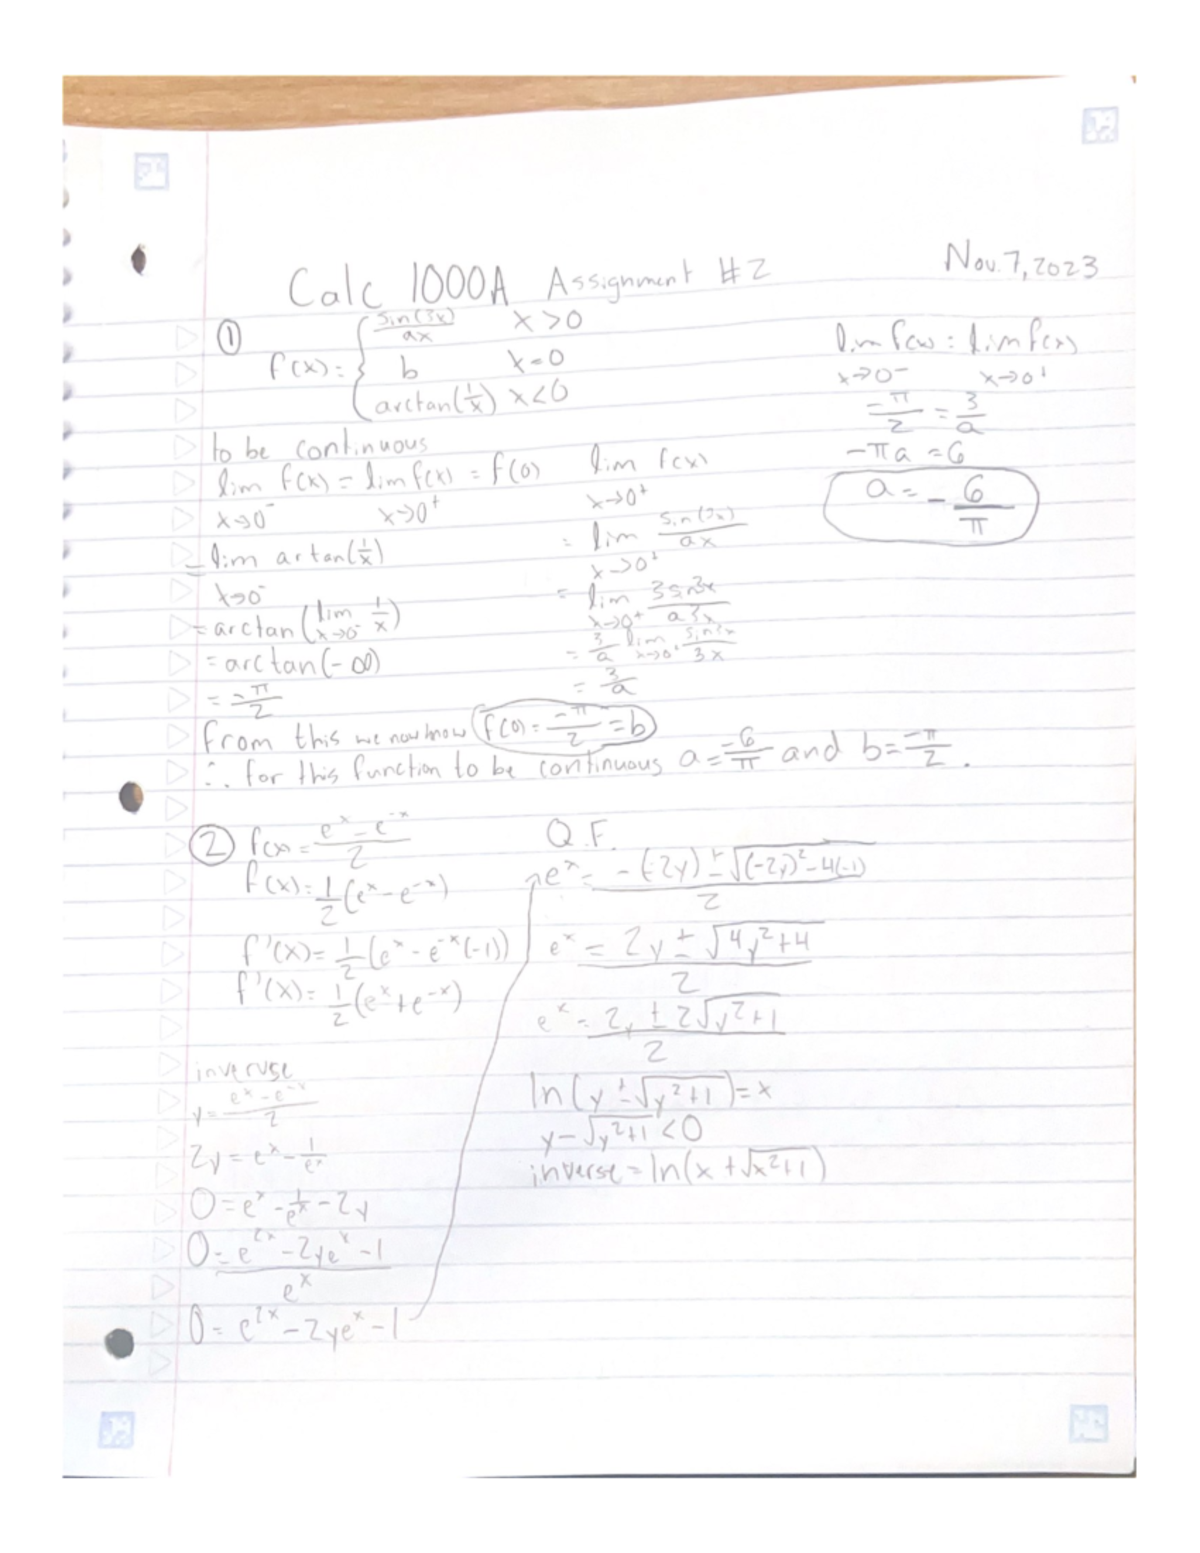 Calc 1000A Assignment #2
Nov. 7, 2023
①
f(x) = { sin(3x)/ax x > 0
b x = 0
arctan(1/x) x < 0
to be continuous
lim f(x) = lim f(x) = f(0)
x→0⁻ x→0⁺
= lim artan(1/x)
x→0⁻
= arctan(lim x→0⁻ 1/x)
= arctan(-∞)
= -π/2
lim f(x)
x→0⁺
= lim sin(3x)/ax
x→0⁺
= lim 3sin3x/a3x
x→0⁺
= 3/a lim x→0⁺ sin3x/3x
= 3/a
lim f(x) = lim f(x)
x→0⁻ x→0⁺
-π/2 = 3/a
-πa = 6
a = -6/π
from this we now know f(0) = -π/2 = b
∴ for this function to be continuous a = -6/π and b = -π/2.
② f(x) = (e^x - e^-x)/2
f(x) = 1/2(e^x - e^-x)
f'(x) = 1/2(e^x - e^-x(-1))
f'(x) = 1/2(e^x + e^-x)
inverse
y = (e^x - e^-x)/2
2y = e^x - 1/e^x
0 = e^x - 1/e^x - 2y
0 = (e^2x - 2ye^x - 1)/e^x
0 = e^2x - 2ye^x - 1
Q.F.
e^x = (-(-2y) ± √((-2y)² - 4(-1)))/2
e^x = (2y ± √(4y² + 4))/2
e^x = (2y ± 2√(y² + 1))/2
ln(y ± √(y² + 1)) = x
y - √(y² + 1) < 0
inverse = ln(x + √(x² + 1))